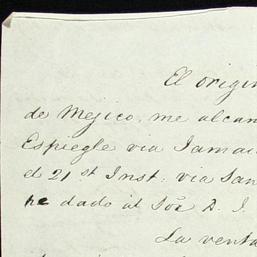 El origin
de Mejico, me alcan
Espiegle via Jamai
el 21st Inst. via San
he dado al Sor. A. J.
La venta